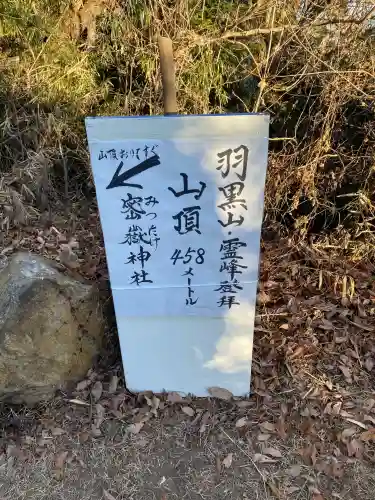 羽黒山・霊峰登拝
山頂
458メートル
山頂おりてすぐ
密嶽神社
みつたけ